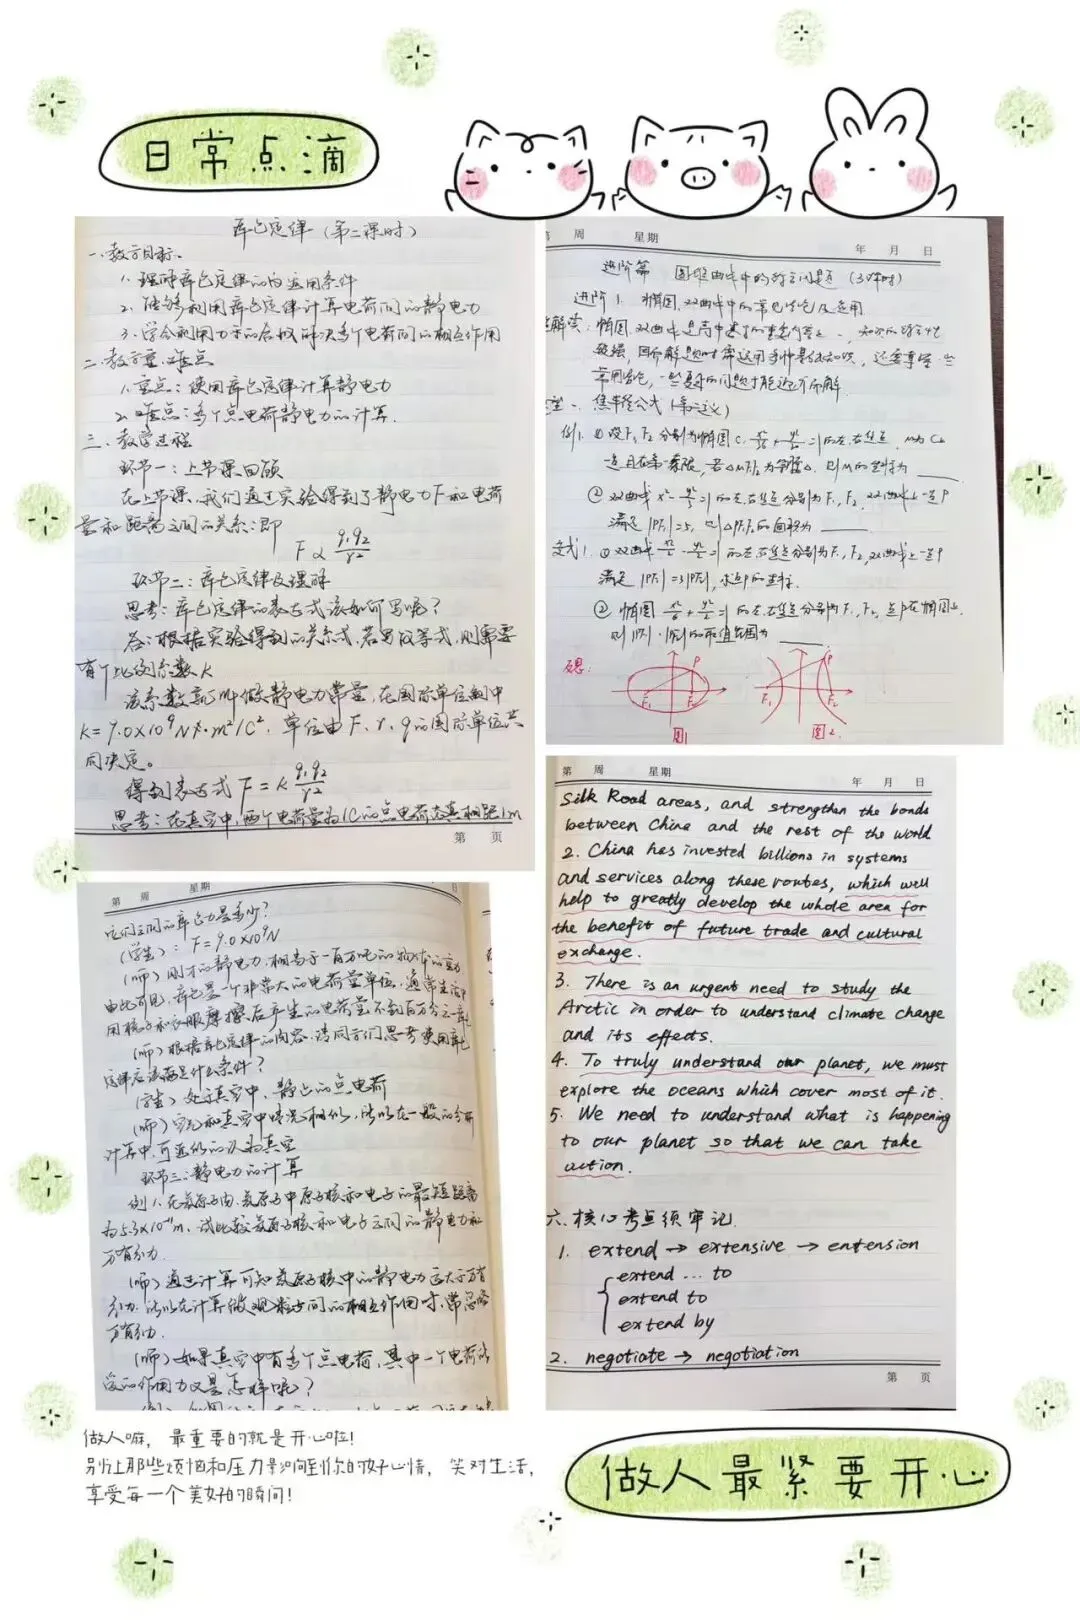 日常点滴
库仑定律（第二课时）
一、教学目标、
1. 理解库仑定律的内容适用条件
2. 能够利用库仑定律计算电荷间的静电力
3. 学会利用力的合成解决多个电荷间的相互作用
二、教学重、难点
1. 重点：使用库仑定律计算静电力
2. 难点：多个点电荷静电力的计算.
三、教学过程
环节一：上节课回顾
在上节课，我们通过实验得到了静电力F和电荷
量和距离之间的关系：即
F∝ q₁q₂/r²
环节二：库仑定律及理解
思考：库仑定律的表达式该如何写呢？
答：根据实验得到的关系式，若写成等式，则需要
有个比例系数K
该系数就叫做静电力常量，在国际单位制中
K=9.0×10⁹N·m²/C². 单位由F、r、q的国际单位共
同决定。
得到表达式 F=K q₁q₂/r²
思考：在真空中，两个电荷量为1C的点电荷在真相距1m
第 页
第 周 星期 日
它们之间的库仑力是多少？
（学生）：F=9.0×10⁹N
（师）刚才的静电力，相当于一百万吨的物体的重力
由此可见，库仑是一个非常大的电荷量单位，通常生活中
用梳子和衣服摩擦后产生的电荷量不到百万分之一库仑
（师）根据库仑定律的内容，请同学们思考使用库仑
定律应该满足什么条件？
（学生）处于真空中，静止的点电荷
（师）空气和真空中情况相似，所以在一般的分析
计算中，可近似的认为真空
环节三：静电力的计算
例1. 在氢原子内，氢原子中原子核和电子的最短距离
为5.3×10⁻¹¹m，试比较氢原子核和电子之间的静电力和
万有引力.
（师）通过计算可知氢原子核中的静电力远大于万有
引力，所以在计算微观粒子间的相互作用时，常忽略
万有引力.
（师）如果真空中有多个点电荷，其中一个电荷所
受的作用力又是怎样呢？
第 周 星期 年 月 日
进阶篇 圆锥曲线中的综合问题（3课时）
进阶1. 椭圆、双曲线中的常见结论及应用
解读：椭圆、双曲线是高中数学的重要内容之一，知识的综合性
较强，因而解题时需运用多种基础知识，还要掌握一些
常用结论，一些复杂的问题才能迎刃而解.
型一、焦半径公式（第二定义）
例1. ① 设F₁, F₂分别为椭圆C: + =1的左、右焦点，M为C上
一点且在第一象限，若△MF₁F₂为等腰△，则M的坐标为
② 双曲线 x²- =1的左、右焦点分别为F₁, F₂, 双曲线上一点P
满足|PF₁|=5，则△PF₁F₂的面积为
变式1. ① 双曲线 - =1的左、右焦点分别为F₁, F₂, 双曲线上一点P
满足|PF₁|=3|PF₂|，求点P的坐标.
② 椭圆 + =1的左、右焦点分别为F₁, F₂, 点P在椭圆上
则|PF₁|·|PF₂|的取值范围为
P
F₁ F₂
图1
P
F₁ F₂
图2.
第 周 星期 年 月 日
Silk Road areas, and strengthen the bonds
between China and the rest of the world
2. China has invested billions in systems
and services along these routes, which will
help to greatly develop the whole area for
the benefit of future trade and cultural
exchange.
3. There is an urgent need to study the
Arctic in order to understand climate change
and its effects.
4. To truly understand our planet, we must
explore the oceans which cover most of it.
5. We need to understand what is happening
to our planet so that we can take
action.
六、核心考点须牢记.
1. extend → extensive → entension
extend ... to
extend to
extend by
2. negotiate → negotiation
第 页
做人嘛，最重要的就是开心啦！
别让那些烦恼和压力影响到你的好心情，笑对生活，
享受每一个美好的瞬间！
做人最紧要开心